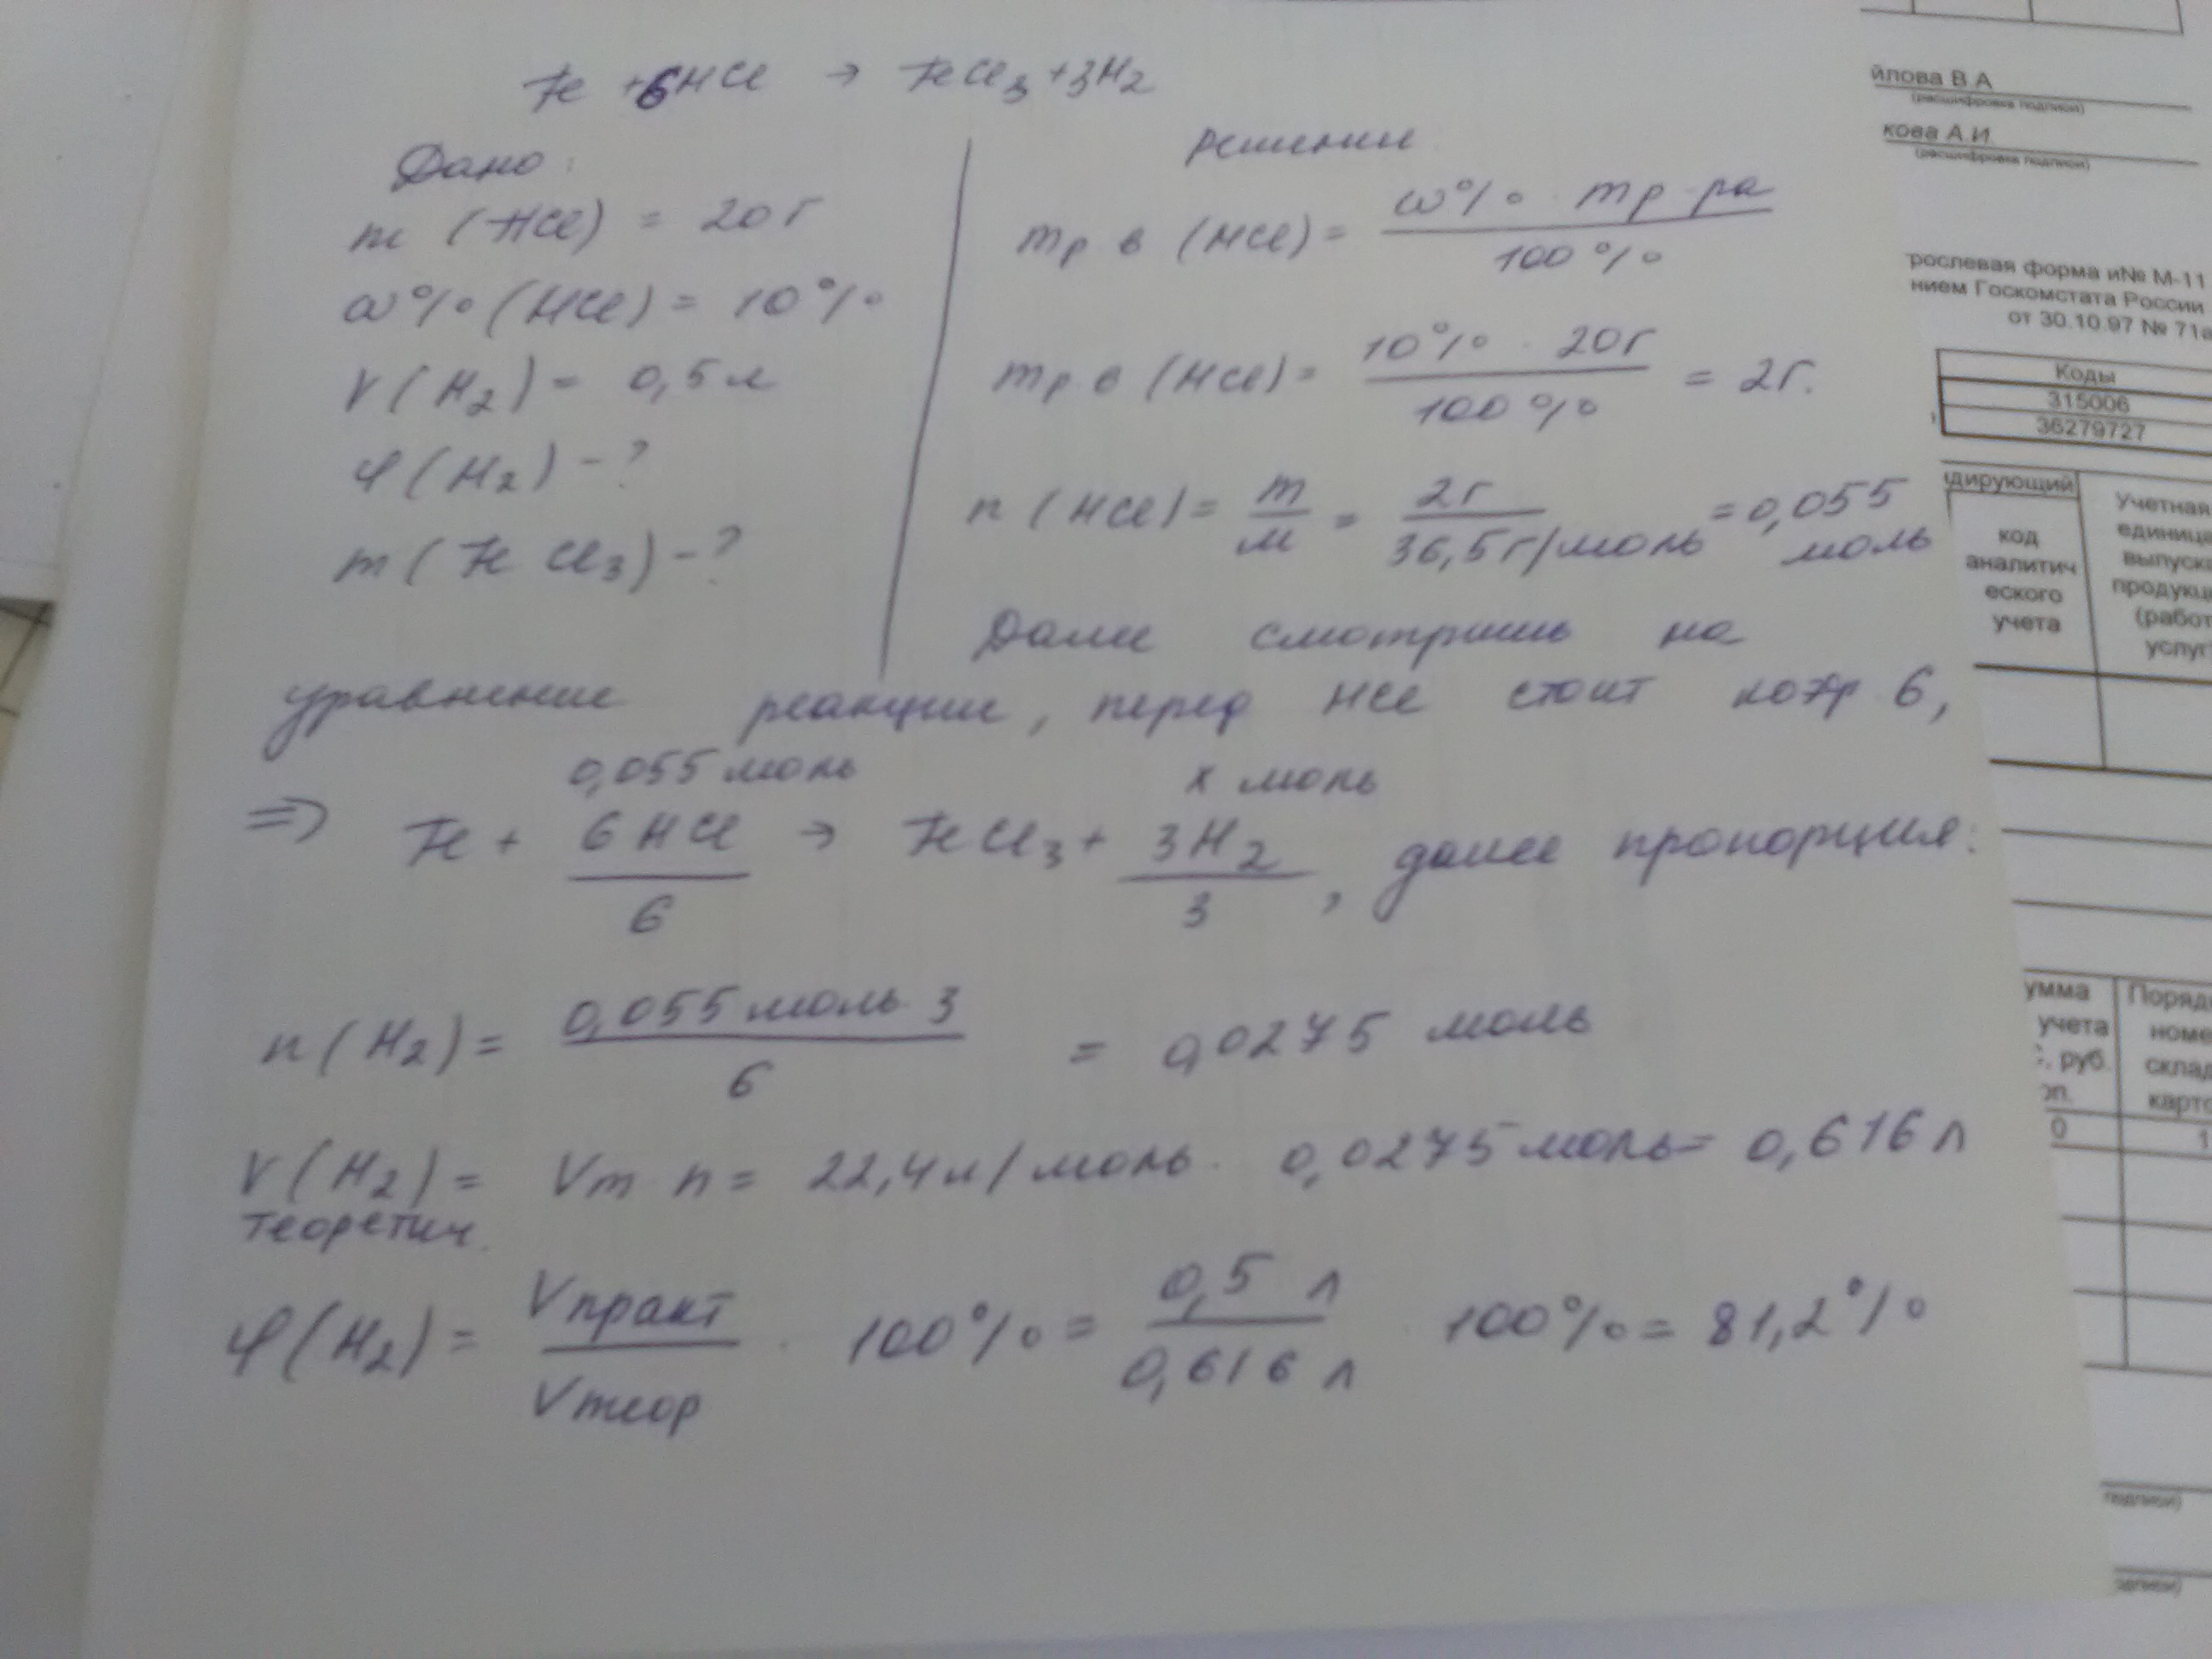 Fe + 6HCl → FeCl3 + 3H2
Дано:
m (HCl) = 20 г
ω% (HCl) = 10%
V(H2) = 0,5 л
φ(H2) - ?
m(FeCl3) - ?
Решение
mр в (HCl) = ω% · mр-ра / 100%
mр в (HCl) = 10% · 20г / 100% = 2г.
n (HCl) = m / M = 2г / 36,5г/моль = 0,055 моль
Далее смотришь на
уравнение реакции, перед HCl стоит коэф 6,
0,055 моль x моль
⇒ Fe + 6HCl / 6 → FeCl3 + 3H2 / 3, далее пропорция:
n(H2) = 0,055 моль · 3 / 6 = 0,0275 моль
V(H2) = Vm n = 22,4л/моль · 0,0275 моль = 0,616 л
теоретич.
φ(H2) = Vпракт / Vтеор · 100% = 0,5 л / 0,616 л · 100% = 81,2%
йлова В.А
(расшифровка подписи)
кова А.И.
(расшифровка подписи)
рослевая форма и№ М-11
нием Госкомстата России
от 30.10.97 № 71а
Коды
315006
36279727
дирующий
код
аналитич
еского
учета
Учетная
единица
выпуска
продукц
(работ
услуг
умма
учета
, руб.
оп.
0
Поряд
номе
склад
карто
1
подписи)